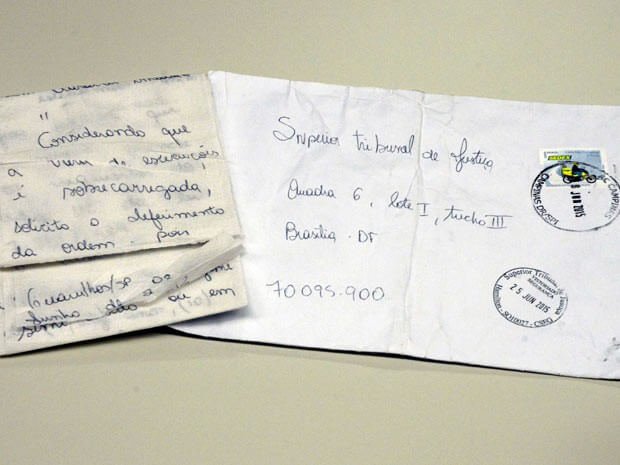 "
Considerando que
a vara de execuções
é sobrecarregada,
solicito o deferimento
da ordem. pois
Guarulhos/SP
Superior Tribunal de Justiça
Quadra 6, lote I, trecho III
Brasília - DF
70095-900
SEDEX
JUN 2015
Superior Tribunal de Justiça
SEGURANÇA
25 JUN 2015